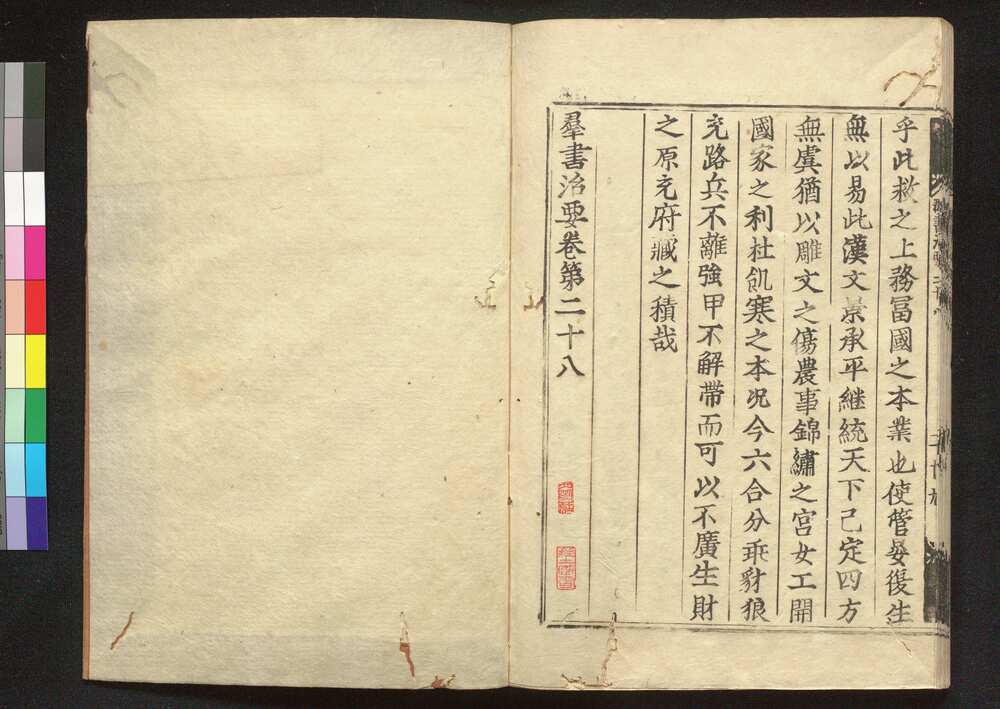 乎此救之上務冨國之本業也使管晏復生
無以易此漢文景承平継統天下已定四方
無虞猶以雕文之傷農事錦繡之害女工開
國家之利杜飢寒之本况今六合分乖豺狼
充路兵不離強甲不解帯而可以不廣生財
之原充府藏之積哉
羣書治要卷第二十八